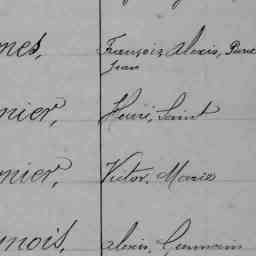 mes, François, Alexis, Pierre
Jean
nier, Henri, Saint
nier, Victor, Marie
nois, Alexis, Germain